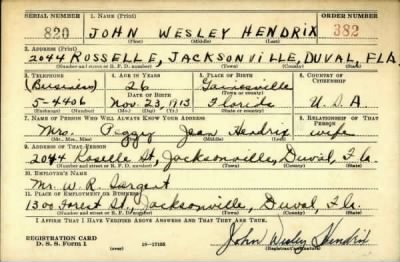 SERIAL NUMBER 1. NAME (Print) ORDER NUMBER
820 JOHN WESLEY HENDRIX 382
(First) (Middle) (Last)
2. ADDRESS (Print)
2044 ROSSELLE, JACKSONVILLE, DUVAL, FLA.
(Number and street or R. F. D. number) (Town) (County) (State)
3. TELEPHONE 4. AGE IN YEARS 5. PLACE OF BIRTH 6. COUNTRY OF CITIZENSHIP
(Business) 26 Gainesville
DATE OF BIRTH
5-4406 Nov. 23, 1913 Florida U.S.A
(Exchange) (Number) (Mo.) (Day) (Yr.) (State or country)
7. NAME OF PERSON WHO WILL ALWAYS KNOW YOUR ADDRESS 8. RELATIONSHIP OF THAT PERSON
Mrs. Peggy Jean Hendrix wife
(Mr., Mrs., Miss) (First) (Middle) (Last)
9. ADDRESS OF THAT PERSON
2044 Roselle St, Jacksonville, Duval, Fla.
(Number and street or R. F. D. number) (Town) (County) (State)
10. EMPLOYER'S NAME
Mr. W. R. Sargent
11. PLACE OF EMPLOYMENT OR BUSINESS
1300 Forest St, Jacksonville, Duval, Fla.
(Number and street or R. F. D. number) (Town) (County) (State)
I AFFIRM THAT I HAVE VERIFIED ABOVE ANSWERS AND THAT THEY ARE TRUE.
REGISTRATION CARD
D. S. S. Form 1 (over) 16-17105 John Wesley Hendrix
(Registrant's signature)